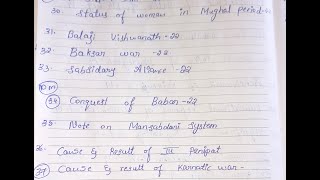 30. Status of women in Mughal period-
31. Balaji Vishwanath-22
32. Baksar war -22
33. Sabsidary Aliance-22
10 m
34 Conquest of Baban-22
35. Note on Mansabdani System
36. Cause & Result of III Panipat
37 Cause & result of Karnatic war-